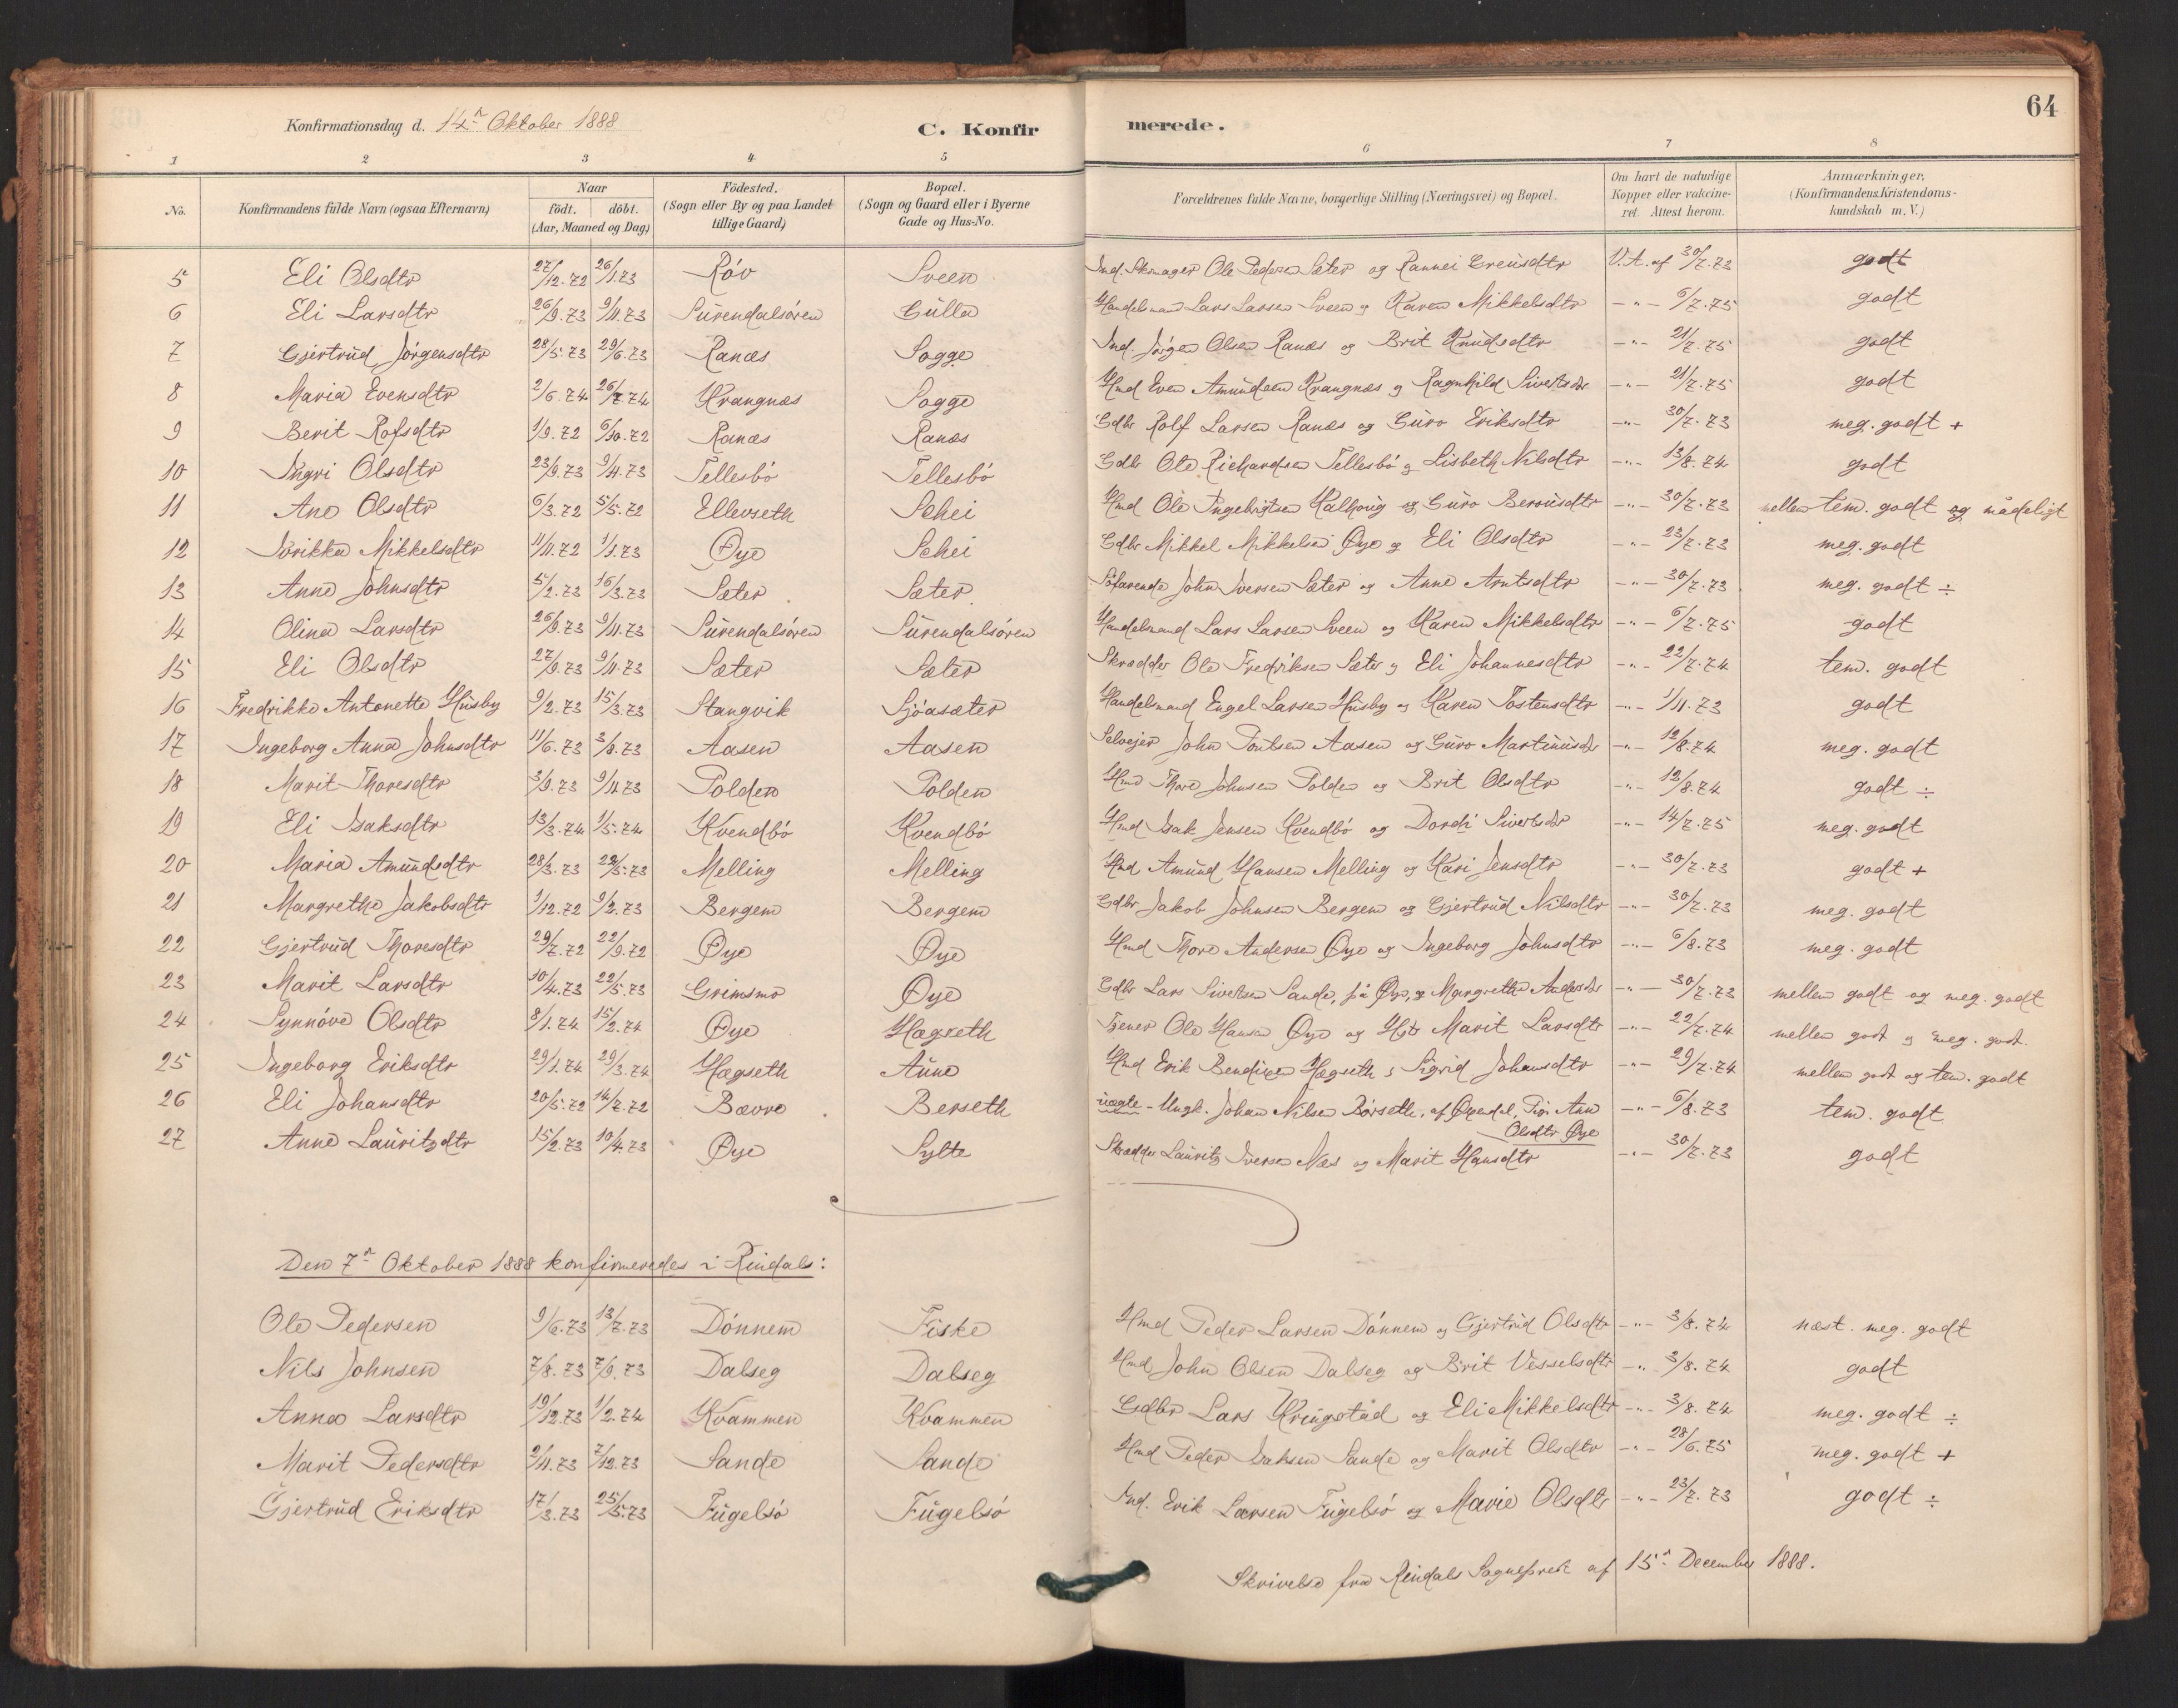 64
Konfirmationsdag d. 14de Oktober 1888 C. Konfirmerede.
1 2 3 4 5 6 7 8
No. Konfirmandens fulde Navn (ogsaa Efternavn) Naar födt. döbt. (Aar, Maaned og Dag) Födested. (Sogn eller By og paa Landet tillige Gaard) Bopæl. (Sogn og Gaard eller i Byerne Gade og Hus-No. Forældrenes fulde Navne, borgerlige Stilling (Næringsvei) og Bopæl. Om havt de naturlige Kopper eller vakcineret. Attest herom. Anmærkninger. (Konfirmandens Kristendomskundskab m. V.)
5 Eli Olsdtr 27/12.72 26/1.73 Röv Sveen Ind. Skomager Ole Pedersen Sæter og Rannei V.A. af 30/7.73 godt
6 Eli Larsdtr 26/9.73 9/11.73 Surendalsören Gulla Handelsmand Lars Larsen Sveen og Karen Mikkelsdtr -"- 6/7.75 godt
7 Gjertrud Jörgensdtr 28/5.73 29/6.73 Ranæs Sogge Ind. Jörgen Olsen Ranæs og Brit Knudsdtr -"- 21/7.75 godt
8 Maria Evensdtr 2/6.74 26/7.74 Krangnæs Sogge Hmd Even Amundsen Krangnæs og Ragnhild Sivertsdr -"- 21/7.75 godt
9 Berit Rofsdtr 1/9.72 6/10.72 Ranæs Ranæs Gdbr Rolf Larsen Ranæs og Guro Eriksdtr -"- 30/7.73 meg. godt +
10 Ingri Olsdtr 23/9.73 9/11.73 Tellesbö Tellesbö Gdbr Ole Richardsen Tellesbö og Lisbeth Nilsdtr -"- 13/8.74 godt
11 Ane Olsdtr 6/3.72 5/5.72 Ellevseth Schei Hmd Ole Ingebrigtsen Kalhoug og Guro -"- 30/7.73 mellem tem. godt og mådeligt
12 Mikkelsdtr 11/11.72 1/1.73 Øye Schei Gdbr Mikkel Mikkelsen Øye og Eli Olsdtr -"- 23/7.73 meg. godt
13 Anne Johnsdtr 5/2.73 16/3.73 Sæter Sæter Söfarende John Iversen Sæter og Anne Arntsdtr -"- 30/7.73 meg. godt ÷
14 Olina Larsdtr 26/9.73 9/11.73 Surendalsören Surendalsören Handelsmand Lars Larsen Sveen og Karen Mikkelsdtr -"- 6/7.75 godt
15 Eli Olsdtr 27/9.73 9/11.73 Sæter Sæter Skrædder Ole Fredriksen Sæter og Eli Johannesdtr -"- 22/7.74 tem. godt
16 Fredrikke Antonette Husby 9/2.73 15/3.73 Stangvik Sjöasæter Handelsmand Engel Larsen Husby og Karen Tostensdtr -"- 1/11.73 godt
17 Ingeborg Anna Johnsdtr 11/6.73 3/8.73 Aasen Aasen Selveier John Aasen og Guro Martinusdr -"- 12/8.74 meg. godt
18 Marit Thoresdtr 3/9.73 9/11.73 Polden Polden Hmd Thore Johnsen Polden og Brit Olsdtr -"- 12/8.74 godt ÷
19 Eli Isaksdtr 13/3.74 1/5.74 Kvendbö Kvendbö Hmd Isak Jensen Kvendbö og Dordi Sivertsdr -"- 14/7.75 meg. godt
20 Maria Amundsdtr 28/3.73 22/5.73 Melling Melling Hmd Amund Hansen Melling og Kari Jensdtr -"- 30/7.73 godt +
21 Margrethe Jakobsdtr 1/12.72 9/2.73 Bergem Bergem Gdbr Jakob Johnsen Bergem og Gjertrud Nilsdtr -"- 30/7.73 meg. godt
22 Gjertrud Thoresdtr 29/7.72 22/9.72 Øye Øye Hmd Thore Andersen Øye og Ingeborg Johnsdtr -"- 6/8.73 meg. godt
23 Marit Larsdtr 10/4.73 22/5.73 Grimsmo Øye Gdbr Lars Sivertsen Sande, på Øye, og Margrethe Andersdr -"- 30/7.73 mellem godt og meg. godt
24 Synnöve Olsdtr 8/1.74 15/2.74 Øye Hægseth Tjener Ole Hansen Øye og Hstr Marit Larsdtr -"- 22/7.74 mellem godt og meg. godt
25 Ingeborg Eriksdtr 29/1.74 29/3.74 Hægseth Aune Hmd Erik Bendixen Hægseth & Sigrid Johansdtr -"- 29/7.74 mellem godt og tem. godt
26 Eli Johansdtr 20/5.72 14/7.72 Bævre Berseth uægte - Ungk. Johan Nilsen Börseth, af Øxendal, Pig. Ann Olsdtr Øye -"- 6/8.73 tem. godt
27 Anne Lauritzdtr 15/2.73 10/4.73 Øye Sylte Skrædder Lauritz Iversen Næs og Marit Hansdtr -"- 30/7.73 godt
Den 7de Oktober 1888 konfirmeredes i Rindals:
Ole Pedersen 9/6.73 13/7.73 Dönnem Fiske Hmd Peder Larsen Dönnem og Gjertrud Olsdtr -"- 3/8.74 næst. meg. godt
Nils Johnsen 7/8.73 7/9.73 Dalseg Dalseg Hmd John Olsen Dalseg og Brit Vesselsdtr -"- 3/8.74 godt
Anne Larsdtr 19/12.73 1/2.74 Kvammen Kvammen Gdbr Lars Kringstad og Eli Mikkelsdtr -"- 3/8.74 meg. godt ÷
Marit Pedersdtr 2/11.73 7/12.73 Sande Sande Hmd Peder Isaksen Sande og Marit Olsdtr -"- 28/6.75 meg. godt +
Gjertrud Eriksdtr 17/3.73 25/5.73 Fugelsö Fugelsö Ind. Erik Larsen Fugelsö og Marie Olsdtr -"- 23/7.73 godt ÷
Skrivelse fra Rindals Sogneprest af 15de December 1888.